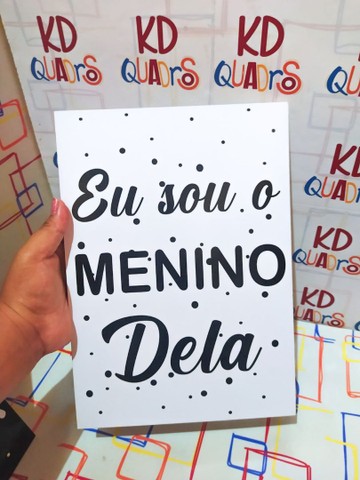 KD
QUADRS
KD
QUADRS
KD
QUADRS
KD
QUADRS
KD
QUADRS
KD
QUADRS
KD
QUADRS
Eu sou o
MENINO
Dela